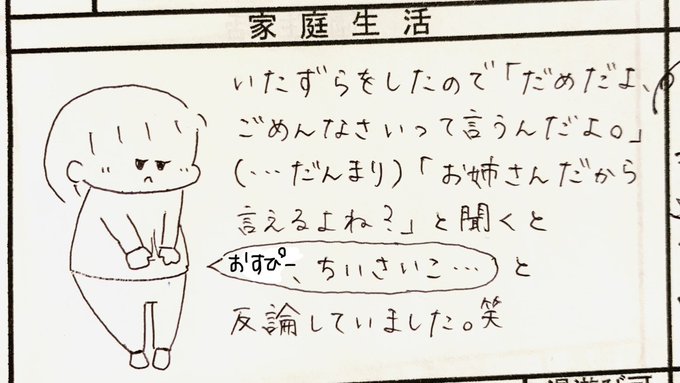 家庭生活
いたずらをしたので「だめだよ、
ごめんなさいって言うんだよ。」
(…だんまり)「お姉さんだから
言えるよね?」と聞くと
おすぴー、ちいさいこ… と
反論していました。笑